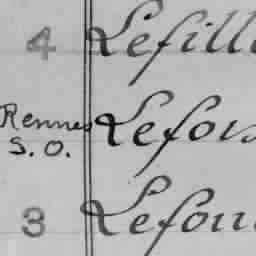 4 Lefill
Rennes Lefou
S. O.
3 Lefou